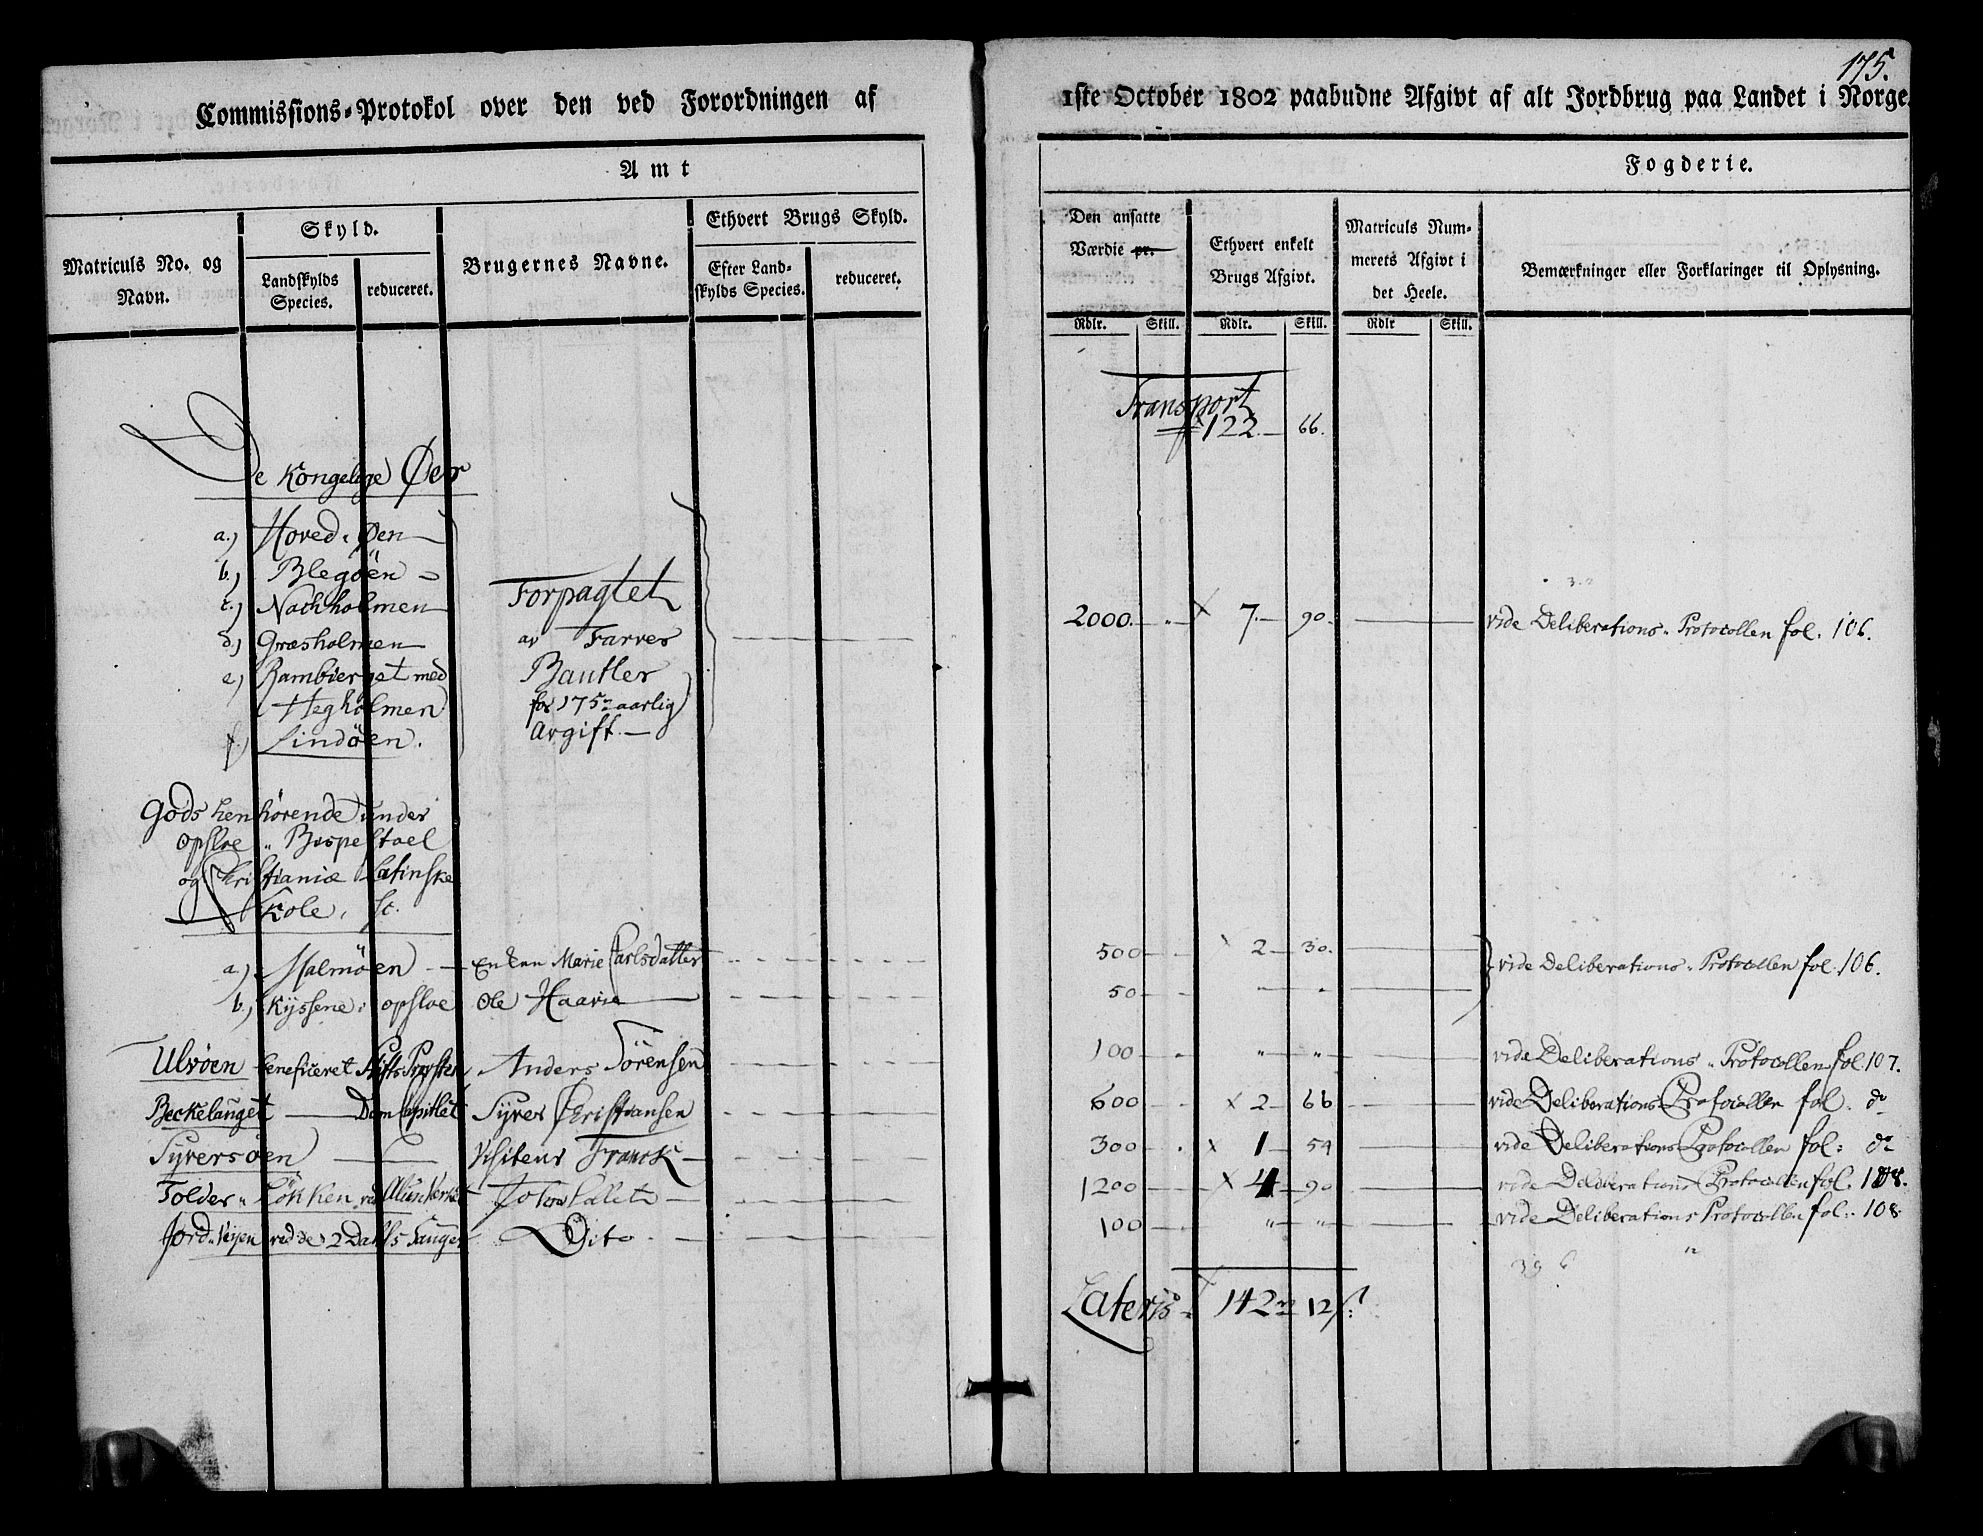 175.
Commissions-Protokol over den ved Forordningen af
1ste October 1802 paabudne Afgivt af alt Jordbrug paa Landet i Norge.
Amt
Fogderie.
Matriculs No. og Navn.
Skyld.
Landskylds Species.
reduceret.
Brugernes Navne.
Ethvert Brugs Skyld.
Efter Landskylds Species.
reduceret.
Den ansatte Værdie pr.
Ethvert enkelt Brugs Afgivt.
Matriculs Nummerets Afgivt i det Heele.
Bemærkninger eller Forklaringer til Oplysning.
Rdlr. Skill. Rdlr. Skill. Rdlr Skill.
Transport
122. 66.
De Kongelige Øer
a.) Hoved-Øen
b.) Blegöen
c.) Nachholmen
d.) Græsholmen
e.) Rambierget med
Hegholmen
f.) Lindöen.
Forpagtet
av Farver
Bautler
for 175 aarlig
Avgift.
2000. 7. 90. vide Deliberations-Protocollen fol. 106.
Gods henhörende under
Opsloe Bispestoel
og Christianiæ Latinske
Skole,
a) Malmöen Enken Marie Carlsdatter 500 2 30. vide Deliberations-Protocollen fol. 106.
b.) Kyssene i Opsloe Ole Haavie 50 " "
Ulvöen beneficeret StiftsProvsten Anders Sörensen 100 " " vide Deliberations-Protocollen fol. 107.
Beckelauget DomCapitlet Syver Christiansen 600 2 66 vide Deliberations Protocollen fol. do
Syversöen Visiteur Franck 300 1 54 vide Deliberations Protocollen fol: do
Tolder-Lökken ved Alun Verket 1200 4 90 vide Deliberations Protocollen fol. 108.
Jord-Veijen ved de 2 Dito 100 " " vide Deliberations Protocollen fol: 108
Lateris 142 12